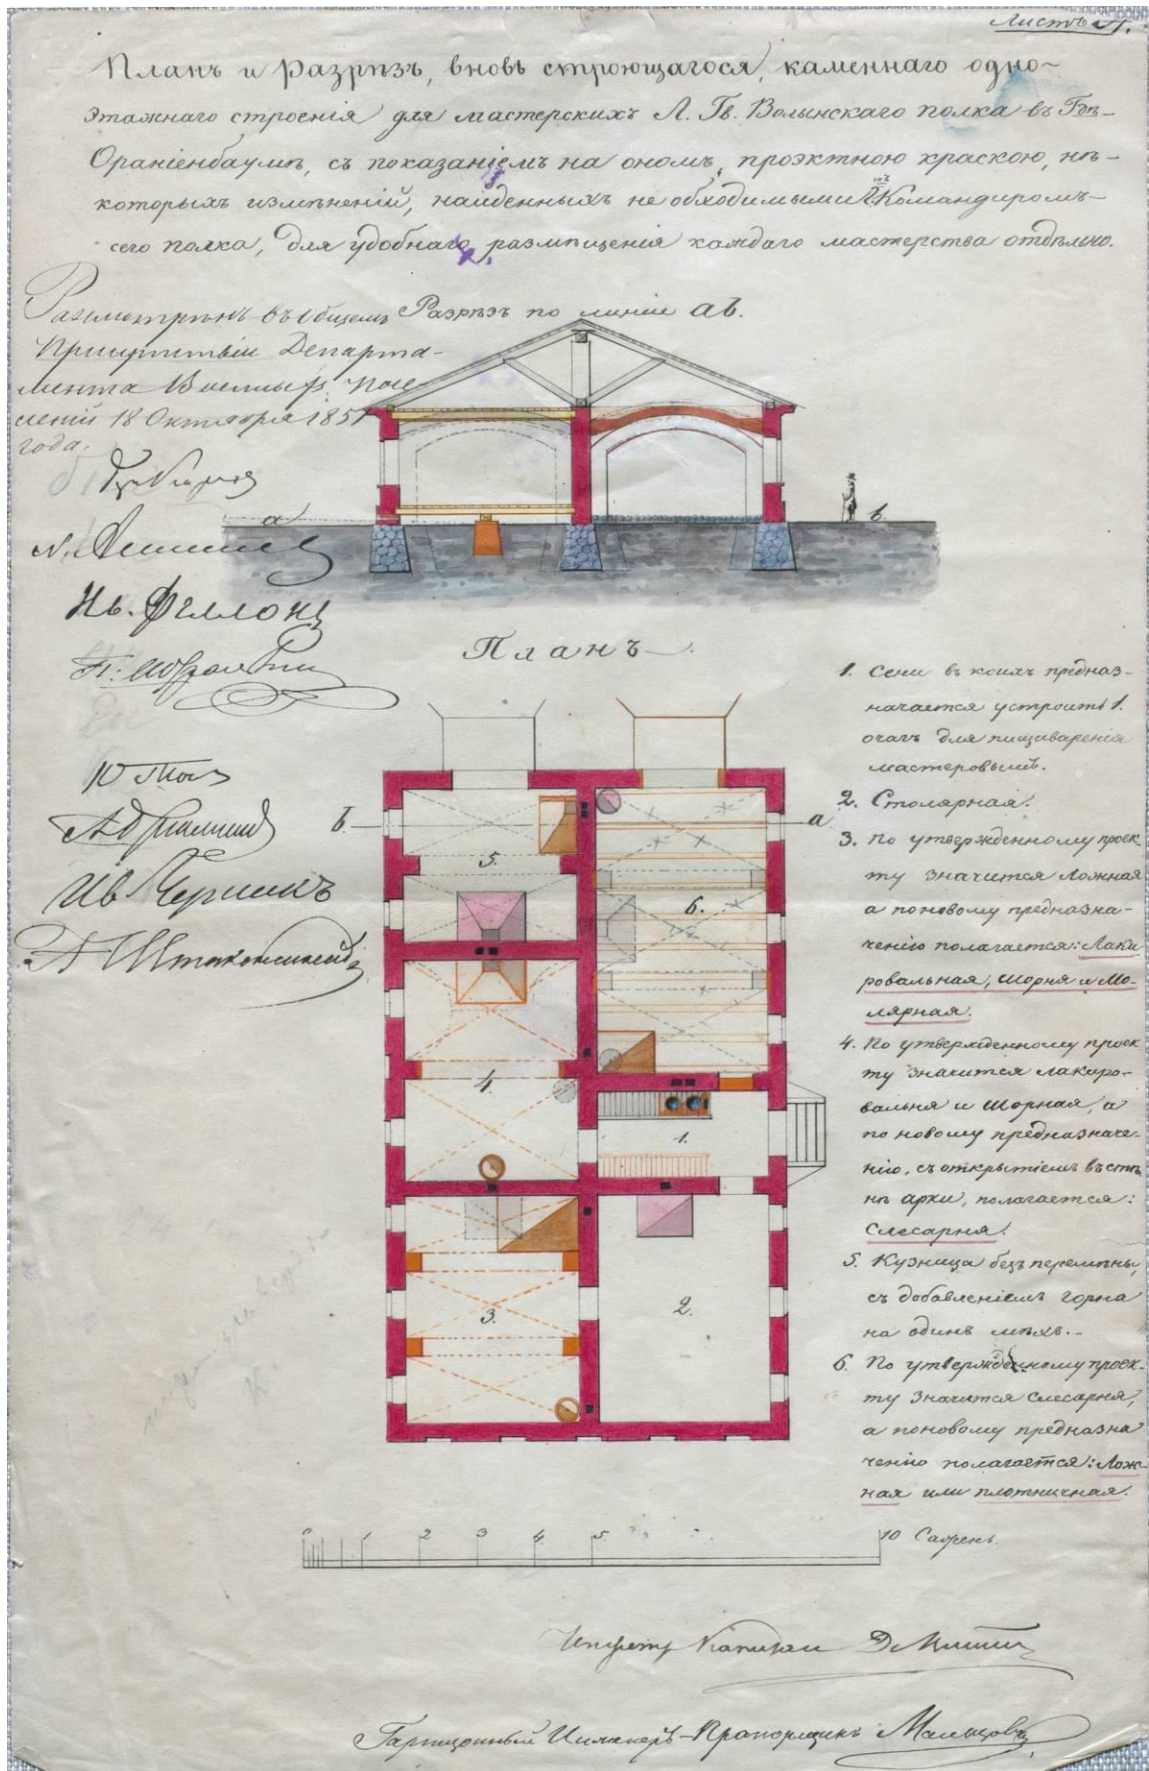 Листъ А.
Планъ и Разрѣзъ, вновь строющагося, каменнаго одно-
этажнаго строенія для мастерскихъ Л. Гв. Волынскаго полка въ Гор-
Ораніенбаумѣ, съ показаніемъ на ономъ, проэктною краскою, нѣ-
которыхъ измѣненій, найденныхъ не обходимыми Г. Командиромъ-
сего полка, для удобнаго размѣщенія каждаго мастерства отдѣльно.
Разсмотрѣнъ въ Общемъ
Присутствіи Департа-
мента Военныхъ Посе
леній 18 Октября 185
года.
Разрѣзъ по линіи ав.
а
в.
Планъ
Ив. Феллонъ
Ив Черникъ
А Штакеншнейд
в.
а
5.
6.
4.
1.
3.
2.
1. Сени въ коихъ предназ-
начается устроить 1.
очагъ для пищеваренія
мастеровымъ.
2. Столярная.
3. По утвержденному проек
ту значится Ложная
а поновому предназна-
ченію полагается: Лаки
ровальная, Шорня и Мо-
лярная.
4. По утвержденному проек
ту значится лакиро-
вальня и Шорная, а
по новому предназначе-
нію, съ открытіемъ въ стѣ
нѣ арки, полагается:
Слесарня.
5. Кузница безъ перемѣны,
съ добавленіемъ горна
на одинъ мѣхъ.
6. По утвержденному проек-
ту значится Слесарня,
а поновому предназна
ченію полагается: Лож-
ная или плотничная.
0 1 2 3 4 5 10 Сажень.
Капитан
Гарнизонный Инженеръ-Прапорщикъ Мальцовъ